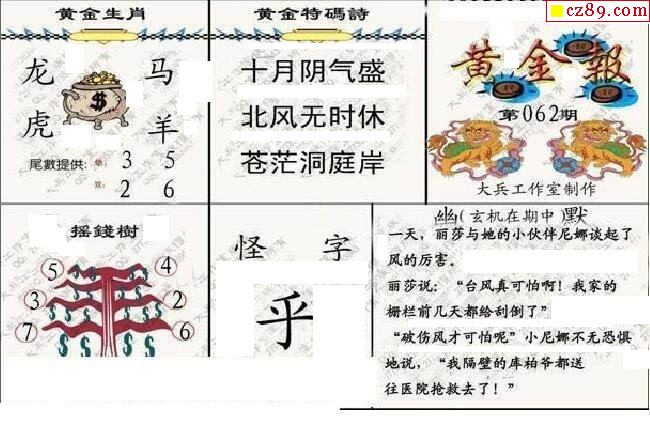 cz89.com
黄金生肖
龙 马
$
虎 羊
尾數提供: 单: 3 5
双: 2 6
黄金特碼詩
十月阴气盛
北风无时休
苍茫洞庭岸
黄金報
第062期
大兵工作室制作
摇錢樹
5 4
3 2
7 6
怪字
乎
幽(玄机在期中)默
一天，丽莎与她的小伙伴尼娜谈起了
风的厉害。
丽莎说：“台风真可怕啊！我家的
栅栏前几天都给刮倒了”
“破伤风才可怕呢”小尼娜不无恐惧
地说，“我隔壁的库柏爷都送
往医院抢救去了！”